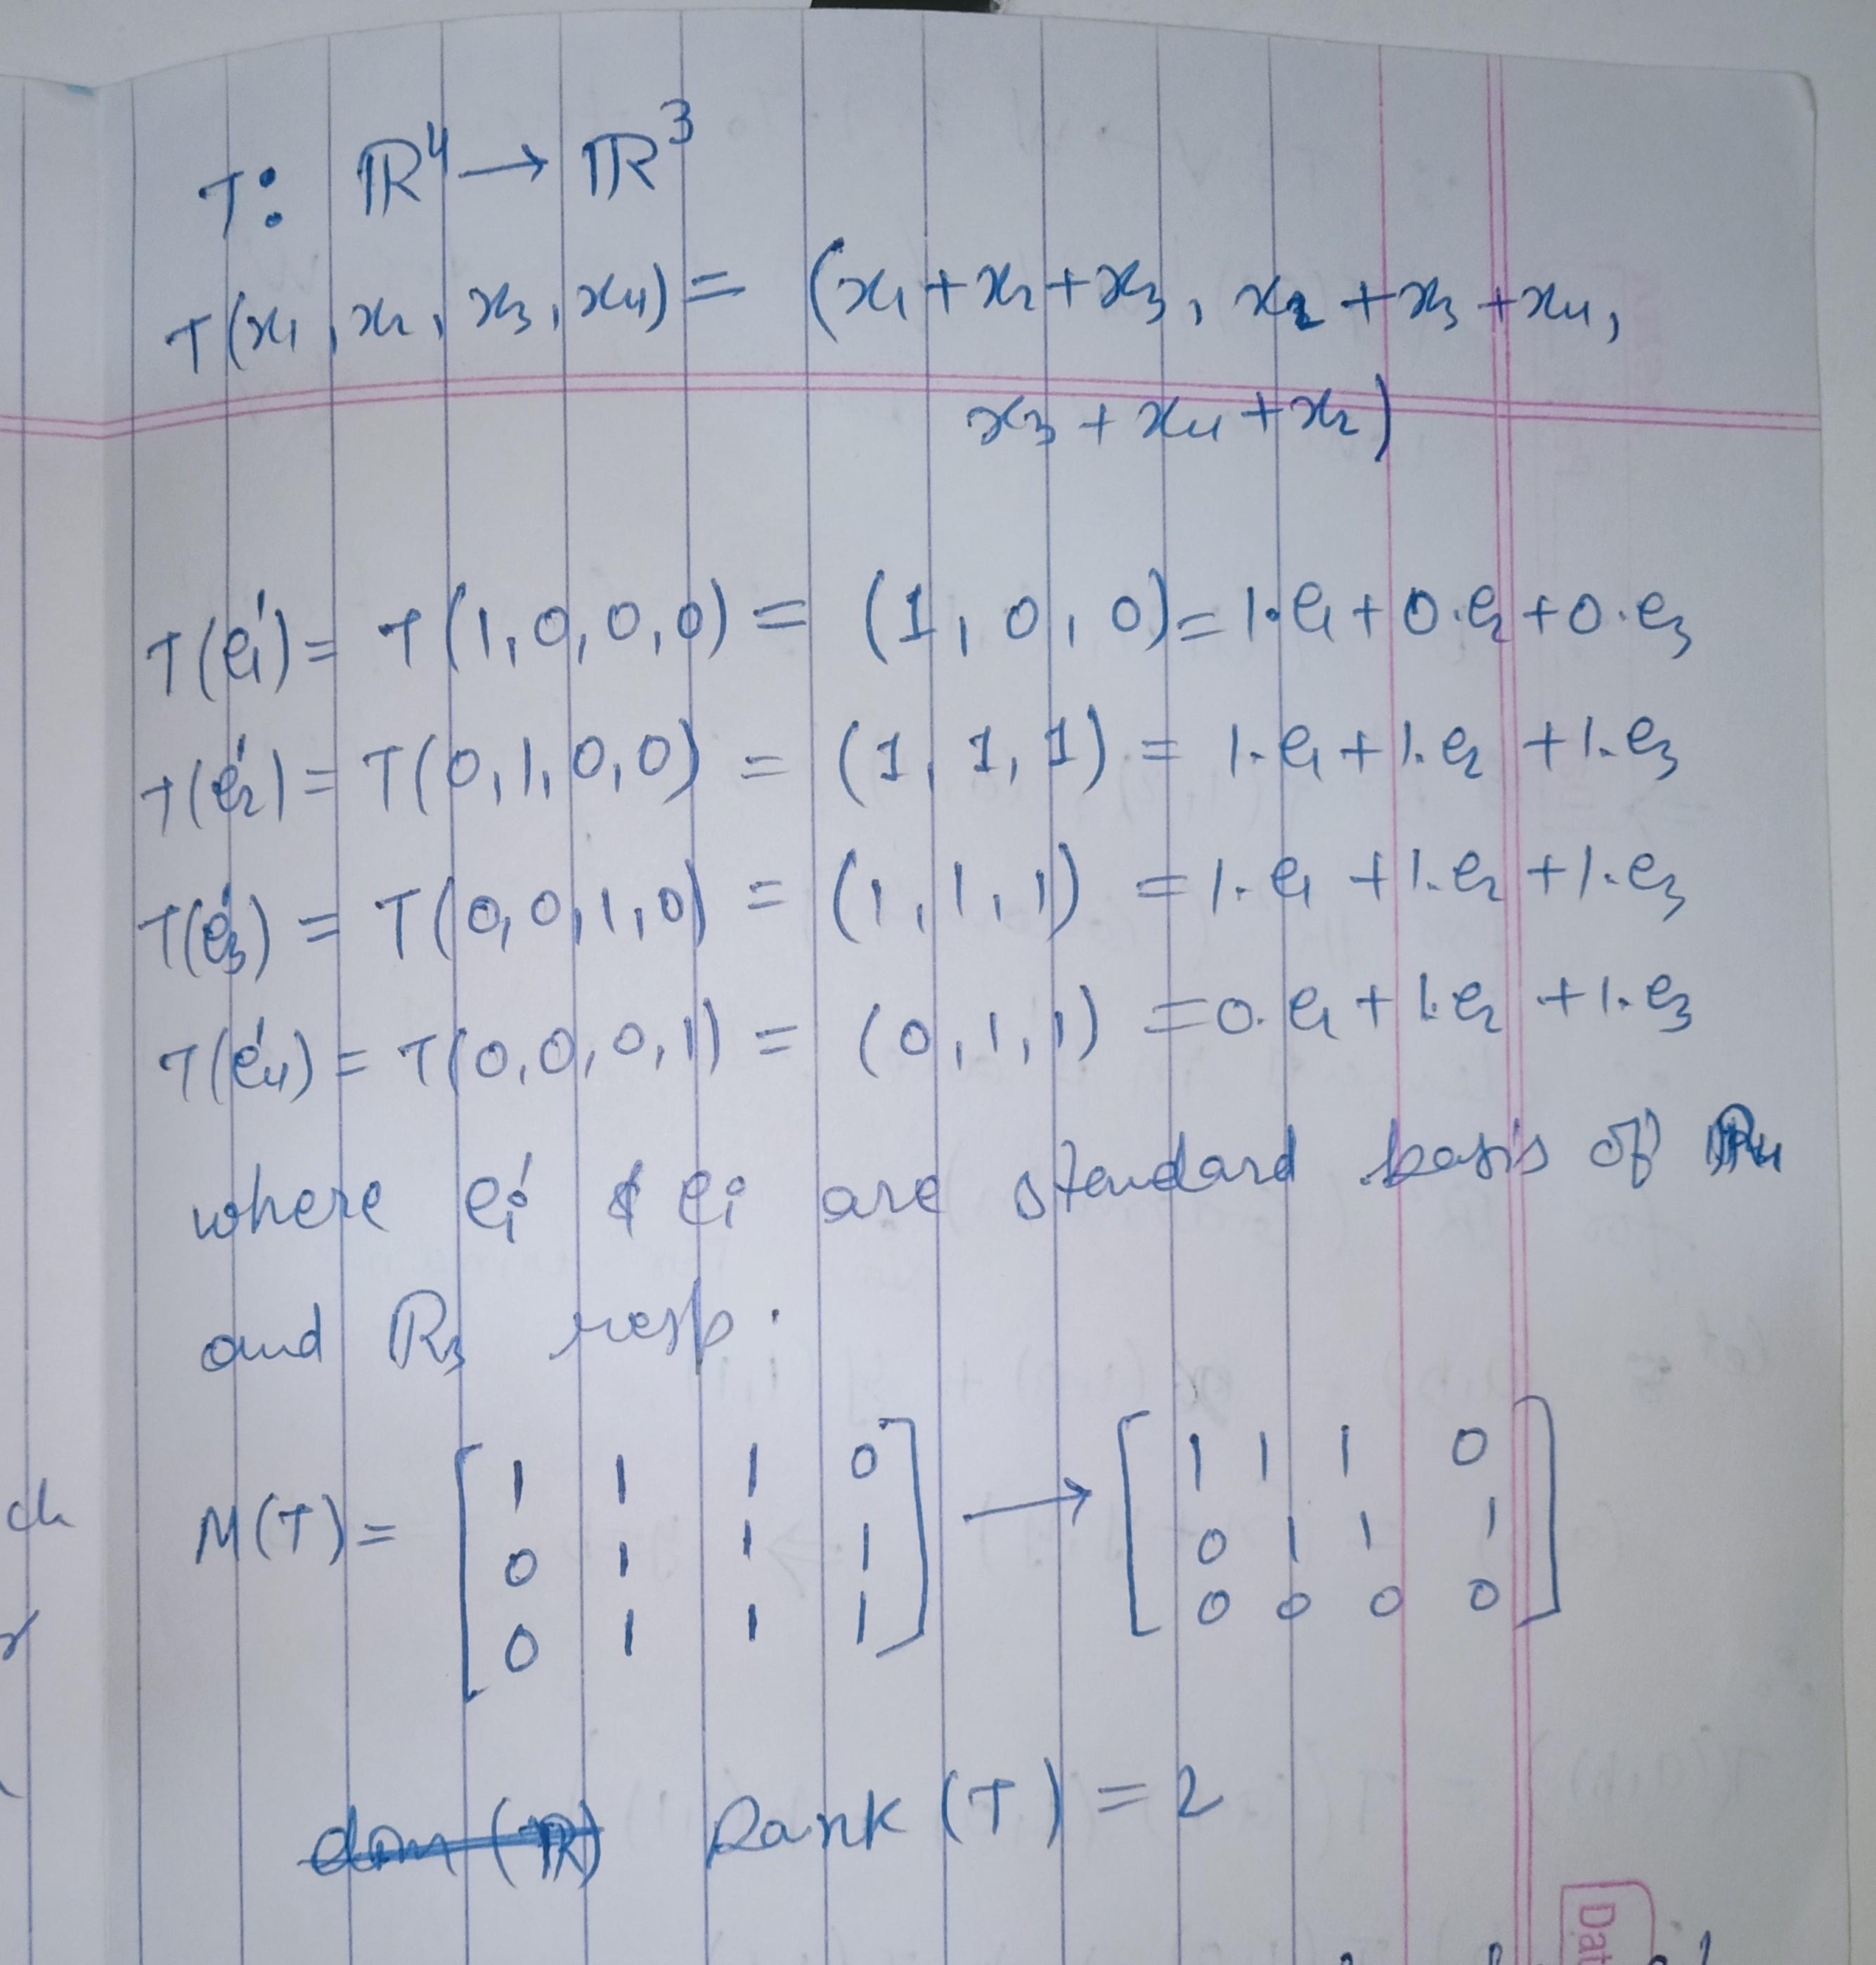 T: ℝ⁴ → ℝ³
T(x₁, x₂, x₃, x₄) = (x₁ + x₂ + x₃, x₂ + x₃ + x₄,
x₃ + x₄ + x₂)
T(e₁') = T(1,0,0,0) = (1, 0, 0) = 1·e₁ + 0·e₂ + 0·e₃
T(e₂') = T(0,1,0,0) = (1, 1, 1) = 1·e₁ + 1·e₂ + 1·e₃
T(e₃') = T(0,0,1,0) = (1, 1, 1) = 1·e₁ + 1·e₂ + 1·e₃
T(e₄') = T(0,0,0,1) = (0, 1, 1) = 0·e₁ + 1·e₂ + 1·e₃
where eᵢ' & eᵢ are standard basis of ℝ₄
and ℝ₃ resp.
M(T) = [1 1 1 0 → [1 1 1 0
0 1 1 1 0 1 1 1
0 1 1 1] 0 0 0 0]
Rank (T) = 2